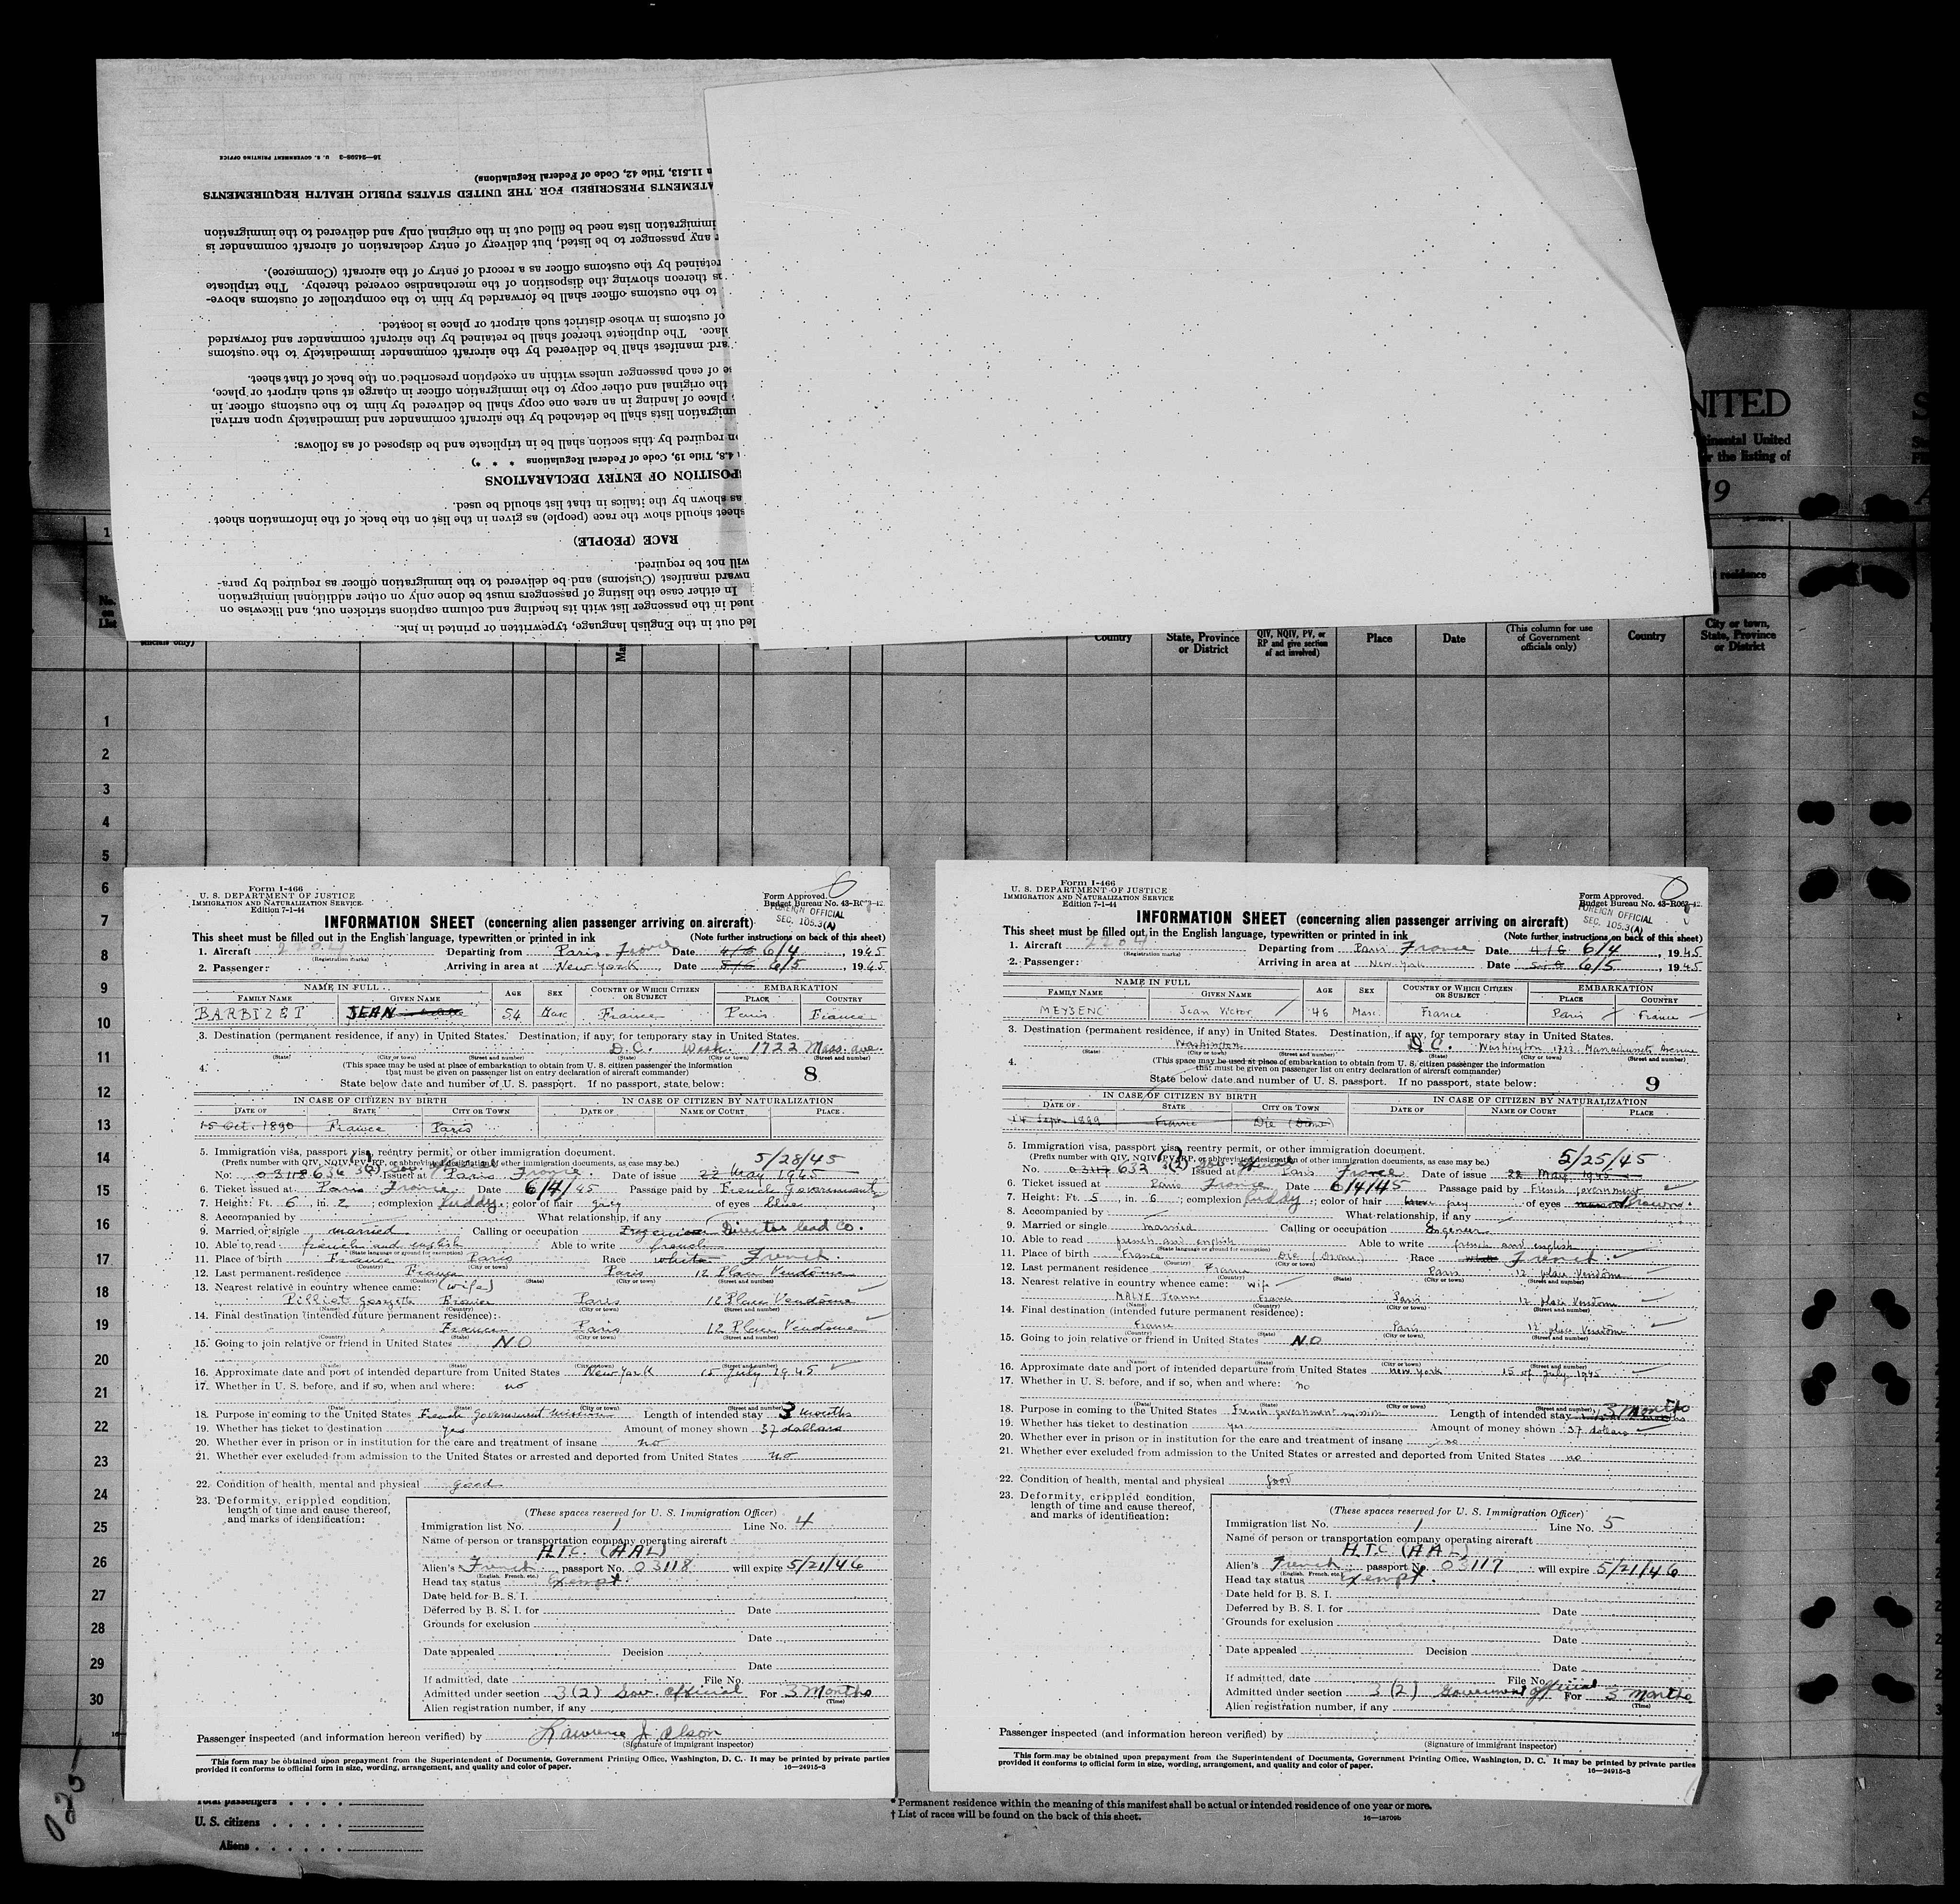 16—24508-3 U. S. GOVERNMENT PRINTING OFFICE
11.513, Title 42, Code of Federal Regulations)
ATEMENTS PRESCRIBED FOR THE UNITED STATES PUBLIC HEALTH REQUIREMENTS
immigration lists need be filled out in the original only and delivered to the immigration
any passenger to be listed, but delivery of entry declaration of aircraft commander is
retained by the customs officer as a record of entry of the aircraft (Commerce).
as thereon showing the disposition of the merchandise covered thereby. The triplicate
to the customs officer shall be forwarded by him to the comptroller of customs above-
of customs in whose district such airport or place is located.
place. The duplicate thereof shall be retained by the aircraft commander and forwarded
ard manifest shall be delivered by the aircraft commander immediately to the customs
se of each passenger unless within an exception prescribed on the back of that sheet.
the original and other copy to the immigration officer in charge at such airport or place,
place of landing in an area one copy shall be delivered by him to the customs officer in
migration lists shall be detached by the aircraft commander and immediately upon arrival
on required by this section shall be in triplicate and be disposed of as follows:
4.8, Title 19, Code of Federal Regulations * * *)
POSITION OF ENTRY DECLARATIONS
as shown by the italics in that list should be used.
sheet should show the race (people) as given in the list on the back of the information sheet
RACE (PEOPLE)
will not be required.
nward manifest (Customs) and be delivered to the immigration officer as required by para-
In either case the listing of passengers must be done only on other additional immigration
ued in the passenger list with its heading and column captions stricken out, and likewise on
led out in the English language, typewritten or printed in ink.
NITED
inental United
r the listing of
19
residence
No. on List
officials only)
Country
State, Province or District
QIV, NQIV, PV, or RP and give section of act involved)
Place
Date
(This column for use of Government officials only)
Country
City or town, State, Province or District
1
2
3
4
5
6
7
8
9
10
11
12
13
14
15
16
17
18
19
20
21
22
23
24
25
26
27
28
29
30
Form I-466
U. S. DEPARTMENT OF JUSTICE
IMMIGRATION AND NATURALIZATION SERVICE
Edition 7-1-44
Form Approved.
Budget Bureau No. 43-R063-42.
FOREIGN OFFICIAL
SEC. 105.3(A)
INFORMATION SHEET (concerning alien passenger arriving on aircraft)
This sheet must be filled out in the English language, typewritten or printed in ink (Note further instructions on back of this sheet)
1. Aircraft 2204 Departing from Paris France Date 4/6 6/4, 1945
(Registration marks)
2. Passenger: Arriving in area at New York Date 5/6 6/5, 1945
NAME IN FULL AGE SEX COUNTRY OF WHICH CITIZEN OR SUBJECT EMBARKATION
FAMILY NAME GIVEN NAME PLACE COUNTRY
BARBIZET JEAN 54 Masc France Paris France
3. Destination (permanent residence, if any) in United States. Destination, if any, for temporary stay in United States.
D.C. Wash. 1722 Mass. ave.
(State) (City or town) (Street and number) (State) (City or town) (Street and number)
4. (This space may be used at place of embarkation to obtain from U. S. citizen passenger the information
that must be given on passenger list on entry declaration of aircraft commander) 8
State below date and number of U. S. passport. If no passport, state below:
IN CASE OF CITIZEN BY BIRTH IN CASE OF CITIZEN BY NATURALIZATION
DATE OF STATE CITY OR TOWN DATE OF NAME OF COURT PLACE
15 Oct. 1890 France Paris
5. Immigration visa, passport visa, reentry permit, or other immigration document. 5/28/45
(Prefix number with QIV, NQIV, PV, RP, or abbreviated designation of other immigration documents, as case may be.)
No. 03118 636 3(2) Issued at Paris France Date of issue 22 May 1945
6. Ticket issued at Paris France Date 6/4/45 Passage paid by French Government
7. Height: Ft. 6, in. 2; complexion ruddy; color of hair grey of eyes blue
8. Accompanied by What relationship, if any
9. Married or single married Calling or occupation Engineer Director lead Co.
10. Able to read french and english Able to write french
(State language or ground for exemption)
11. Place of birth France Paris Race white French
12. Last permanent residence France Paris 12 Place Vendôme
(Country) (State) (City or town) (Street and number)
13. Nearest relative in country whence came: (wife)
Pilliot georgette France Paris 12 Place Vendôme
(Name) (Country) (City or town) (Street and number)
14. Final destination (intended future permanent residence):
France Paris 12 Place Vendôme
(Country) (State) (City or town) (Street and number)
15. Going to join relative or friend in United States NO
(Name) (State) (City or town) (Street and number)
16. Approximate date and port of intended departure from United States New York 15 July 1945
17. Whether in U. S. before, and if so, when and where: no
(Date) (State) (City or town) (Street and number)
18. Purpose in coming to the United States French government mission Length of intended stay 3 months
19. Whether has ticket to destination yes Amount of money shown 37 dollars
20. Whether ever in prison or in institution for the care and treatment of insane no
21. Whether ever excluded from admission to the United States or arrested and deported from United States no
22. Condition of health, mental and physical good
23. Deformity, crippled condition, length of time and cause thereof, and marks of identification:
(These spaces reserved for U. S. Immigration Officer)
Immigration list No. 1 Line No. 4
Name of person or transportation company operating aircraft
A.T.C. (AAL)
Alien's French passport No. 03118 will expire 5/21/46
(English, French, etc.)
Head tax status Exempt.
Date held for B. S. I.
Deferred by B. S. I. for Date
Grounds for exclusion
Date
Date appealed Decision
Date
If admitted, date File No.
Admitted under section 3(2) Gov. official For 3 Months
(Time)
Alien registration number, if any
Passenger inspected (and information hereon verified) by Lawrence J. Olson
(Signature of immigrant inspector)
This form may be obtained upon prepayment from the Superintendent of Documents, Government Printing Office, Washington, D. C. It may be printed by private parties
provided it conforms to official form in size, wording, arrangement, and quality and color of paper. 16—24915-3
Form I-466
U. S. DEPARTMENT OF JUSTICE
IMMIGRATION AND NATURALIZATION SERVICE
Edition 7-1-44
Form Approved.
Budget Bureau No. 43-R063-42.
FOREIGN OFFICIAL
SEC. 105.3(A)
INFORMATION SHEET (concerning alien passenger arriving on aircraft)
This sheet must be filled out in the English language, typewritten or printed in ink (Note further instructions on back of this sheet)
1. Aircraft 2204 Departing from Paris France Date 4/6 6/4, 1945
(Registration marks)
2. Passenger: Arriving in area at New York Date 5/6 6/5, 1945
NAME IN FULL AGE SEX COUNTRY OF WHICH CITIZEN OR SUBJECT EMBARKATION
FAMILY NAME GIVEN NAME PLACE COUNTRY
MEYSENC Jean Victor 46 Masc. France Paris France
3. Destination (permanent residence, if any) in United States. Destination, if any, for temporary stay in United States.
Washington D.C. Washington Massachusetts Avenue
(State) (City or town) (Street and number) (State) (City or town) (Street and number)
4. (This space may be used at place of embarkation to obtain from U. S. citizen passenger the information
that must be given on passenger list on entry declaration of aircraft commander) 9
State below date and number of U. S. passport. If no passport, state below:
IN CASE OF CITIZEN BY BIRTH IN CASE OF CITIZEN BY NATURALIZATION
DATE OF STATE CITY OR TOWN DATE OF NAME OF COURT PLACE
14 Sept. 1899 France Die (Drome)
5. Immigration visa, passport visa, reentry permit, or other immigration document. 5/25/45
(Prefix number with QIV, NQIV, PV, RP, or abbreviated designation of other immigration documents, as case may be.)
No. 03117 632 3(2) Issued at Paris France Date of issue 22 May 1945
6. Ticket issued at Paris France Date 6/4/45 Passage paid by French government
7. Height: Ft. 5, in. 6; complexion ruddy; color of hair grey of eyes Brown
8. Accompanied by What relationship, if any
9. Married or single married Calling or occupation Engineer
10. Able to read french and english Able to write french and english
(State language or ground for exemption)
11. Place of birth France Die (Drome) Race white French
12. Last permanent residence France Paris 12 place Vendôme
(Country) (State) (City or town) (Street and number)
13. Nearest relative in country whence came: wife
MALYE Jeanne France Paris 12 place Vendôme
(Name) (Country) (City or town) (Street and number)
14. Final destination (intended future permanent residence):
France Paris 12 place Vendôme
(Country) (State) (City or town) (Street and number)
15. Going to join relative or friend in United States NO
(Name) (State) (City or town) (Street and number)
16. Approximate date and port of intended departure from United States New York 15 of July 1945
17. Whether in U. S. before, and if so, when and where: no
(Date) (State) (City or town) (Street and number)
18. Purpose in coming to the United States French government mission Length of intended stay 3 Months
19. Whether has ticket to destination yes Amount of money shown 37 dollars
20. Whether ever in prison or in institution for the care and treatment of insane no
21. Whether ever excluded from admission to the United States or arrested and deported from United States no
22. Condition of health, mental and physical good
23. Deformity, crippled condition, length of time and cause thereof, and marks of identification:
(These spaces reserved for U. S. Immigration Officer)
Immigration list No. 1 Line No. 5
Name of person or transportation company operating aircraft
A.T.C. (AAL)
Alien's French passport No. 03117 will expire 5/21/46
(English, French, etc.)
Head tax status Exempt.
Date held for B. S. I.
Deferred by B. S. I. for Date
Grounds for exclusion
Date
Date appealed Decision
Date
If admitted, date File No.
Admitted under section 3(2) Government official For 3 Months
(Time)
Alien registration number, if any
Passenger inspected (and information hereon verified) by
(Signature of immigrant inspector)
This form may be obtained upon prepayment from the Superintendent of Documents, Government Printing Office, Washington, D. C. It may be printed by private parties
provided it conforms to official form in size, wording, arrangement, and quality and color of paper. 16—24915-3
Total passengers
U. S. citizens
Aliens
* Permanent residence within the meaning of this manifest shall be actual or intended residence of one year or more.
† List of races will be found on the back of this sheet. 16—18709b
025